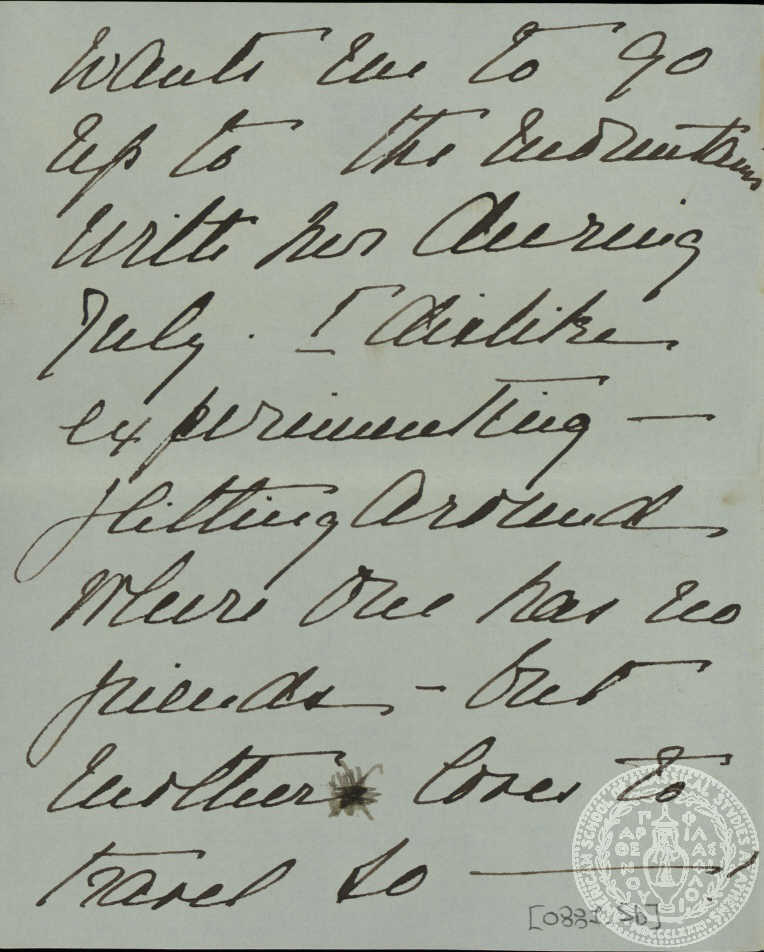 wants me to go
up to the mountains
with her during
July. I dislike
experimenting —
flitting around
where one has no
friends - but
Mother loves to
travel so —
AMERICAN SCHOOL OF CLASSICAL STUDIES